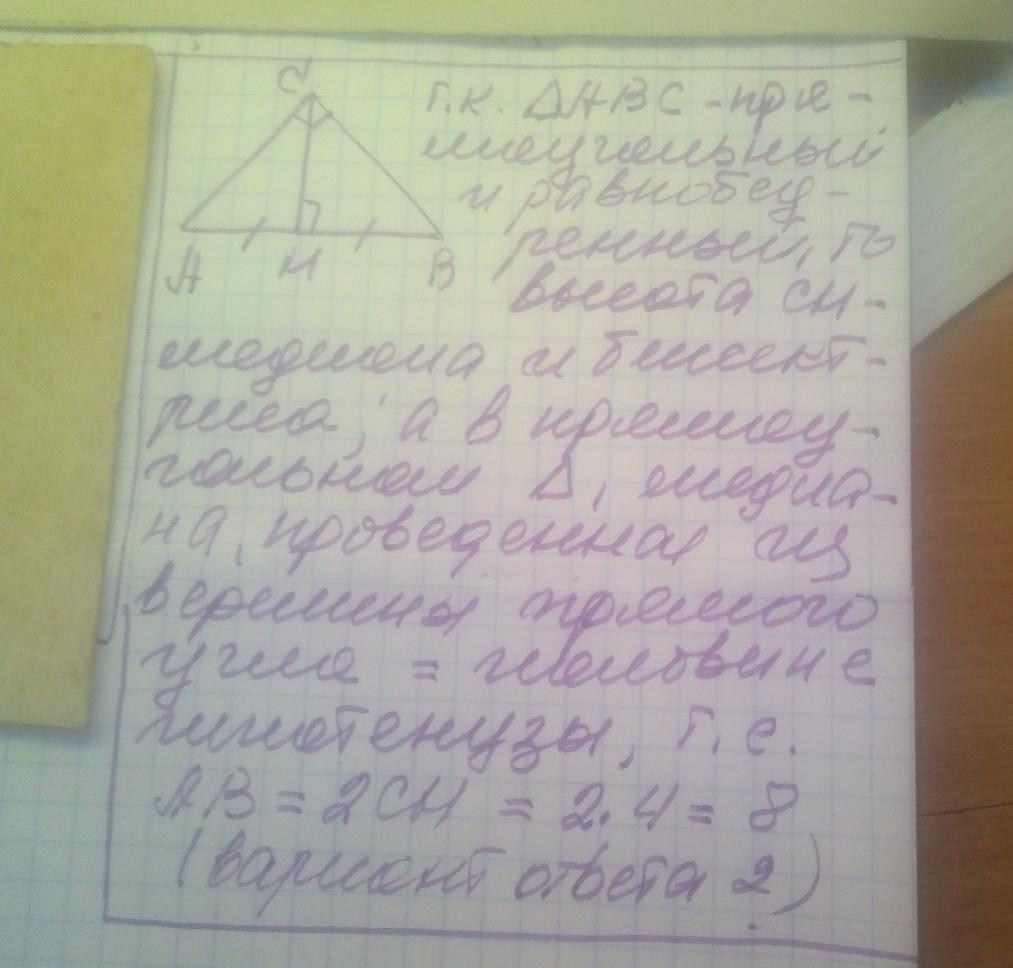 C
A H B
т.к. ΔABC - пря-
моугольный
и равнобед-
ренный, то
высота CH -
медиана и биссект-
риса, а в прямоу-
гольном Δ, медиа-
на, проведенная из
вершины прямого
угла = половине
гипотенузы, т.е.
AB = 2CH = 2·4 = 8
(вариант ответа 2)